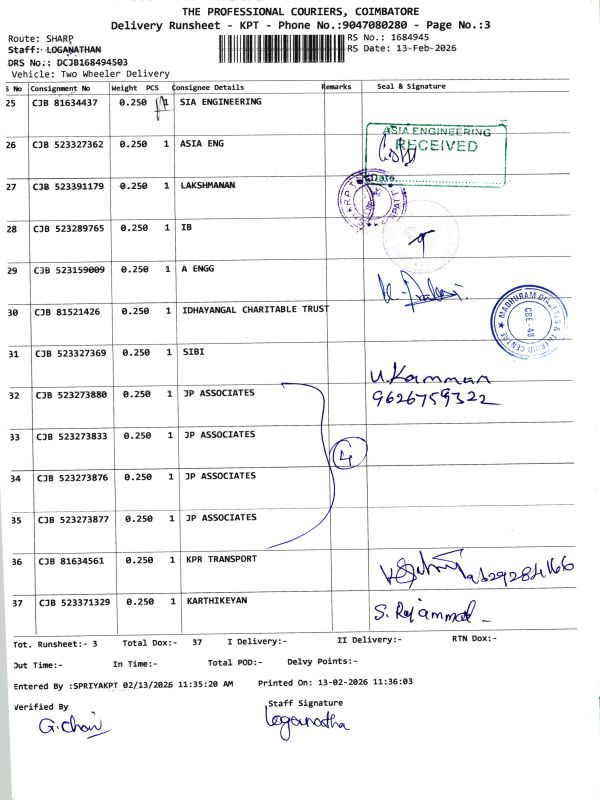 THE PROFESSIONAL COURIERS, COIMBATORE
Delivery Runsheet - KPT - Phone No.:9047080280 - Page No.:3
Route: SHARP
RS No.: 1684945
Staff: LOGANATHAN
RS Date: 13-Feb-2026
DRS No.: DCJB168494503
Vehicle: Two Wheeler Delivery
S No Consignment No Weight PCS Consignee Details Remarks Seal & Signature
25 CJB 81634437 0.250 1 SIA ENGINEERING
ASIA ENGINEERING
RECEIVED
Date
26 CJB 523327362 0.250 1 ASIA ENG
27 CJB 523391179 0.250 1 LAKSHMANAN
28 CJB 523289765 0.250 1 IB
29 CJB 523159009 0.250 1 A ENGG
30 CJB 81521426 0.250 1 IDHAYANGAL CHARITABLE TRUST
CBE-48
31 CJB 523327369 0.250 1 SIBI
U. Kamman
9626759322
32 CJB 523273880 0.250 1 JP ASSOCIATES
33 CJB 523273833 0.250 1 JP ASSOCIATES
4
34 CJB 523273876 0.250 1 JP ASSOCIATES
35 CJB 523273877 0.250 1 JP ASSOCIATES
36 CJB 81634561 0.250 1 KPR TRANSPORT
37 CJB 523371329 0.250 1 KARTHIKEYAN
S. Rajammal
Tot. Runsheet:- 3 Total Dox:- 37 I Delivery:- II Delivery:- RTN Dox:-
Out Time:- In Time:- Total POD:- Delvy Points:-
Entered By :SPRIYAKPT 02/13/2026 11:35:20 AM Printed On: 13-02-2026 11:36:03
Verified By
Staff Signature